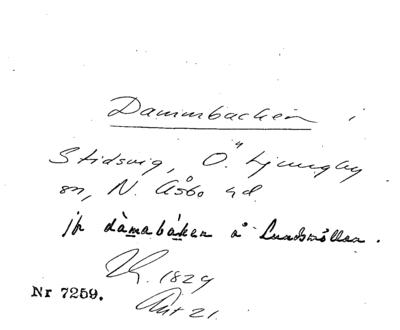 Dammbacken i
Stidsvig, Ö. Ljungby
sn, N. Åsbo hd.
jfr dàmabákan å Lundsmöllan.
1829
Nr 7259.
Akt 21.